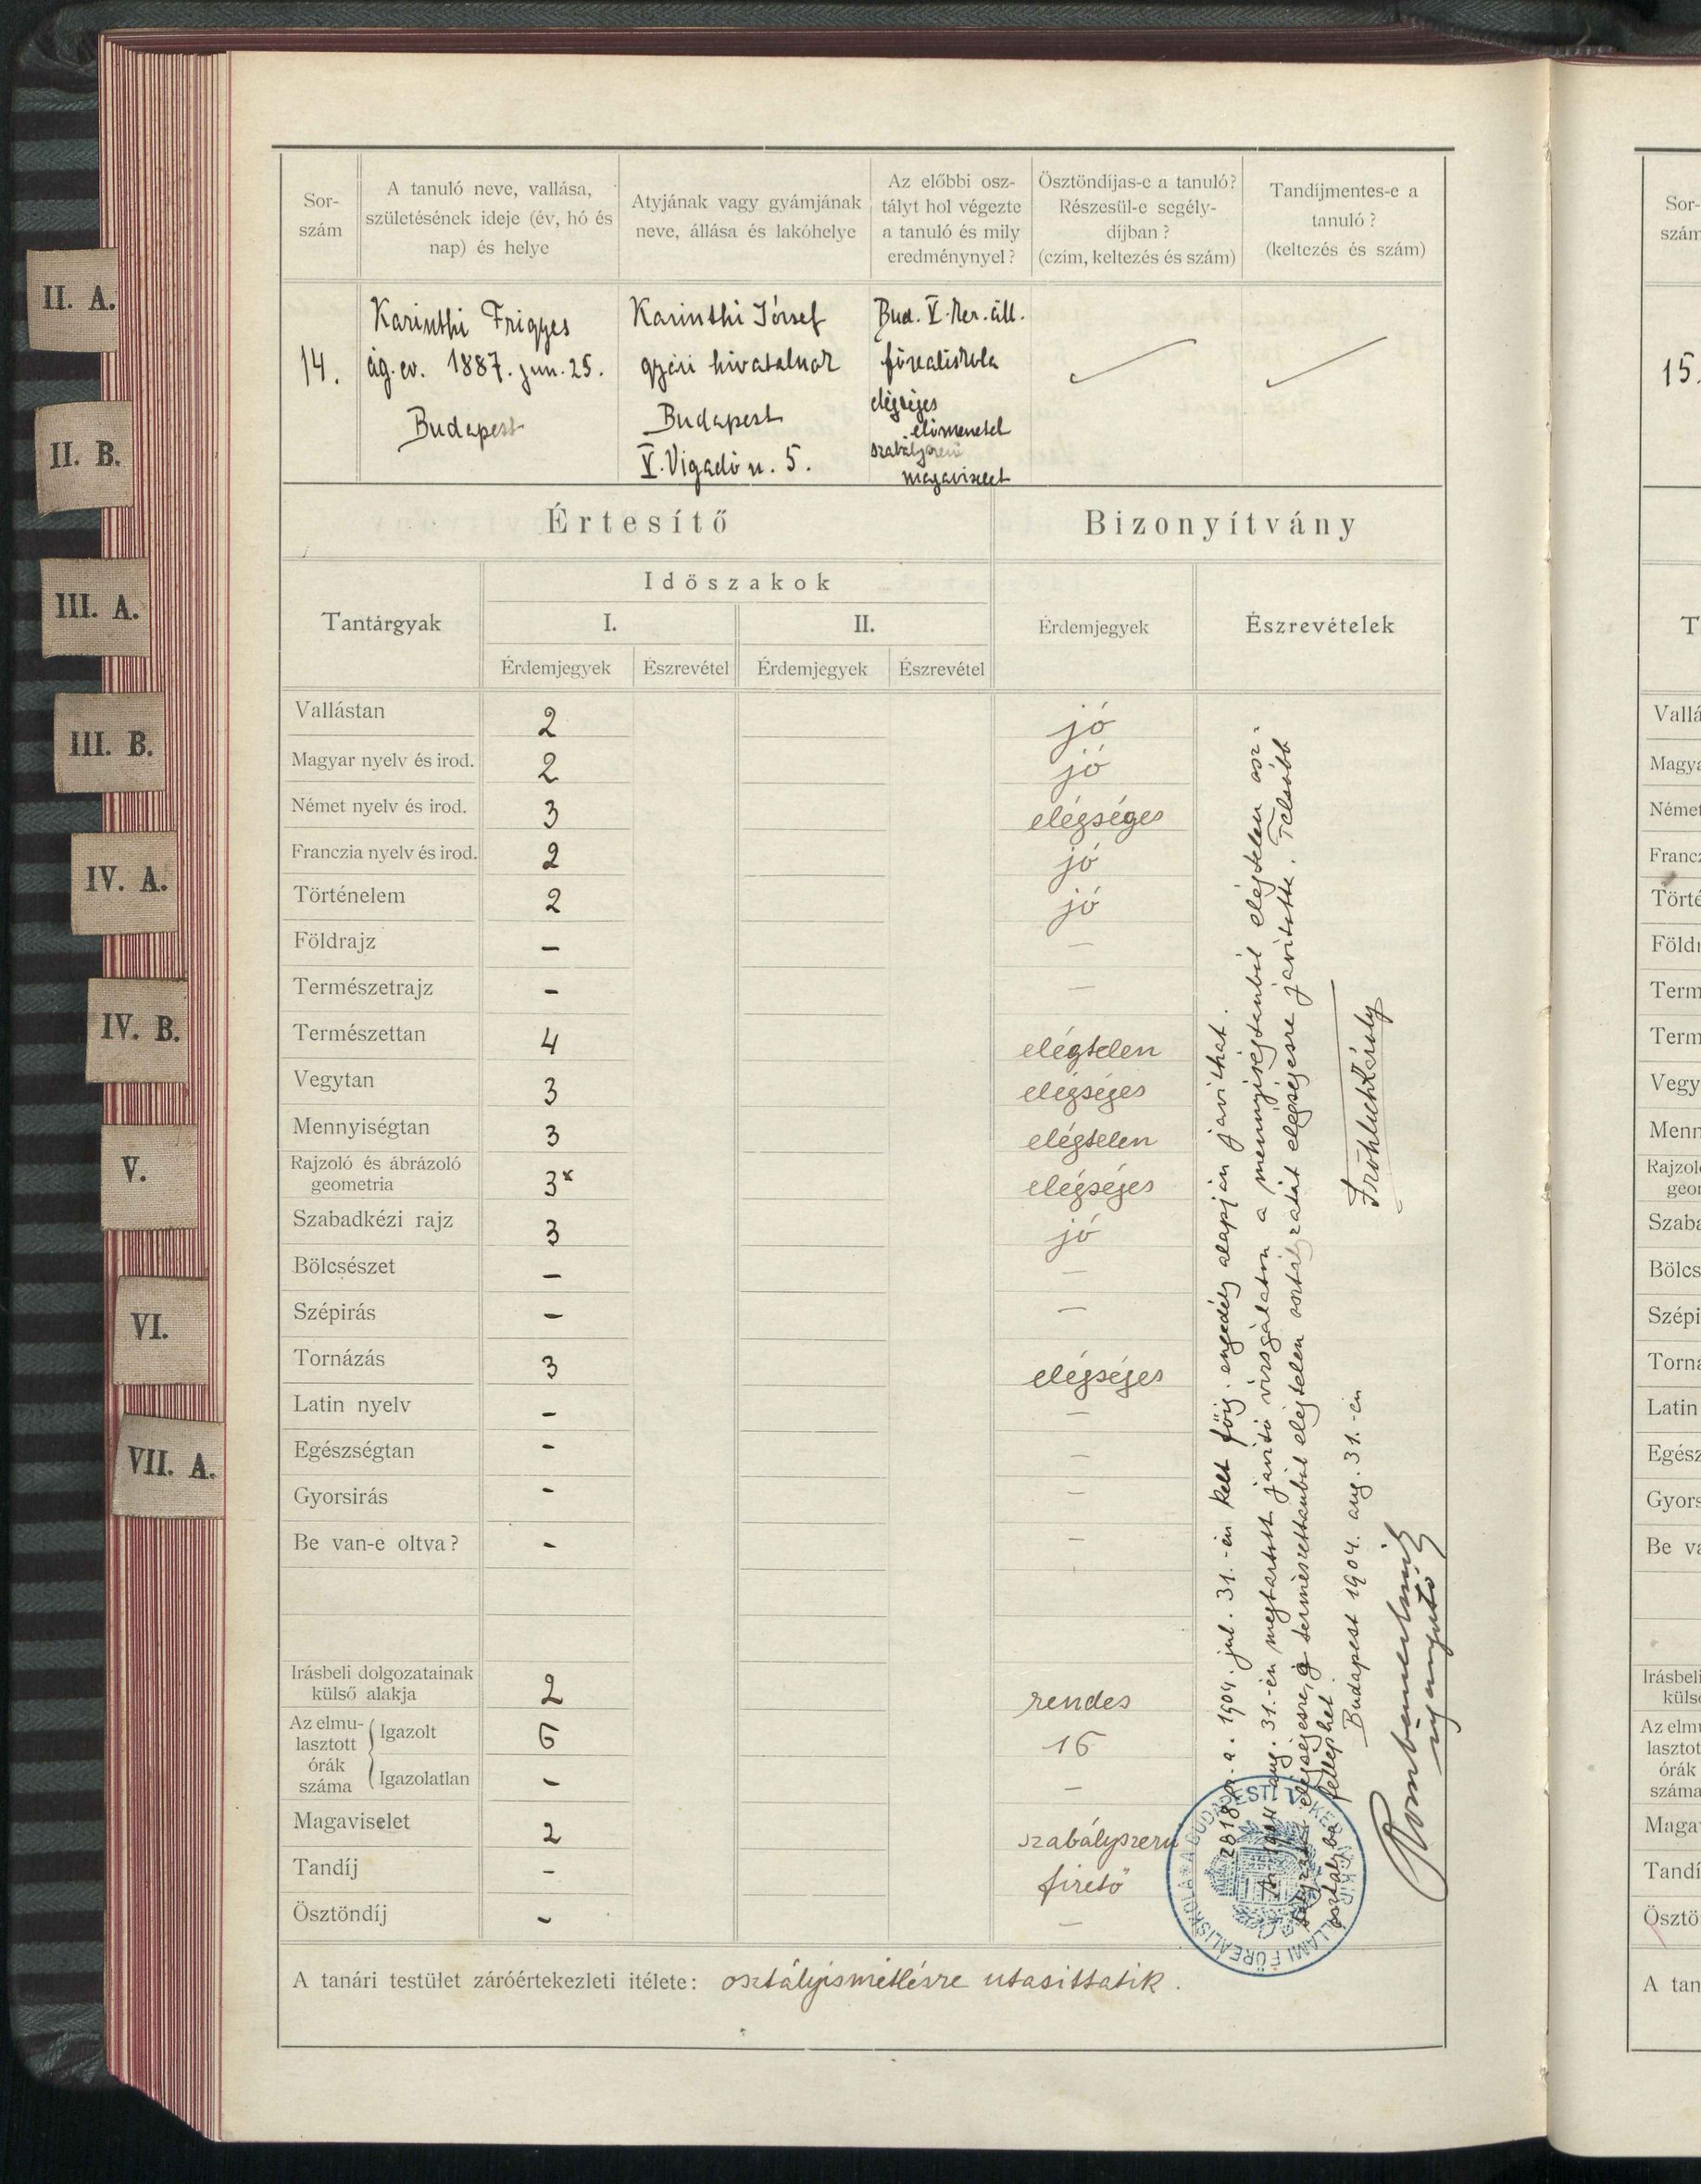 II. A.
II. B.
III. A.
III. B.
IV. A.
IV. B.
V.
VI.
VII. A.
Sor-
szám
A tanuló neve, vallása,
születésének ideje (év, hó és
nap) és helye
Atyjának vagy gyámjának
neve, állása és lakóhelye
Az előbbi osz-
tályt hol végezte
a tanuló és mily
eredménynyel?
Ösztöndíjas-e a tanuló?
Részesül-e segély-
díjban?
(czím, keltezés és szám)
Tandíjmentes-e a
tanuló?
(keltezés és szám)
14.
Karinthi Frigyes
ág. ev. 1887. jun. 25.
Budapest
Karinthi József
gyári hivatalnok
Budapest
V. Vigadó u. 5.
Bud. V. ker. áll.
főreáliskola
elégséges
előmenetel
szabályszerű
magaviselet
Értesítő
Bizonyítvány
Tantárgyak
Időszakok
I.
II.
Érdemjegyek
Észrevétel
Érdemjegyek
Észrevétel
Érdemjegyek
Észrevételek
Vallástan 2 jó
Magyar nyelv és irod. 2 jó
Német nyelv és irod. 3 elégséges
Franczia nyelv és irod. 2 jó
Történelem 2 jó
Földrajz – –
Természetrajz – –
Természettan 4 elégtelen
Vegytan 3 elégséges
Mennyiségtan 3 elégtelen
Rajzoló és ábrázoló
geometria 3* elégséges
Szabadkézi rajz 3 jó
Bölcsészet – –
Szépirás – –
Tornázás 3 elégséges
Latin nyelv – –
Egészségtan – –
Gyorsirás – –
Be van-e oltva? – –
Irásbeli dolgozatainak
külső alakja 2 rendes
Az elmu-
lasztott
órák
száma
Igazolt 6 16
Igazolatlan – –
Magaviselet 2 szabályszerű
Tandíj – fizető
Ösztöndíj – –
2818 sz. a. 1904. jul. 31.-én kelt főig. engedély alapján javíthat.
Az 1904 aug. 31.-én megtartott javító vizsgálaton a mennyiségtanból elégtelen osz-
tályzatát elégségesre, a természettanból elégtelen osztályzatát elégségesre javította. Felsőbb
osztályba felléphet.
Budapest 1904. aug. 31.-én
Fröhlich Károly
igazgató
A BUDAPESTI V. KER. M. KIR. ÁLLAMI FŐREÁLISKOLA
A tanári testület záróértekezleti itélete: osztályismétlésre utasíttatik.
Sor-
szám
15.
T
Vallá
Magya
Német
Francz
Törté
Földr
Term
Term
Vegy
Menn
Rajzol
geon
Szaba
Bölcs
Szépi
Torná
Latin
Egész
Gyors
Be va
Irásbeli
küls
Az elmu
lasztot
órák
száma
Maga
Tandí
Ösztö
A tan